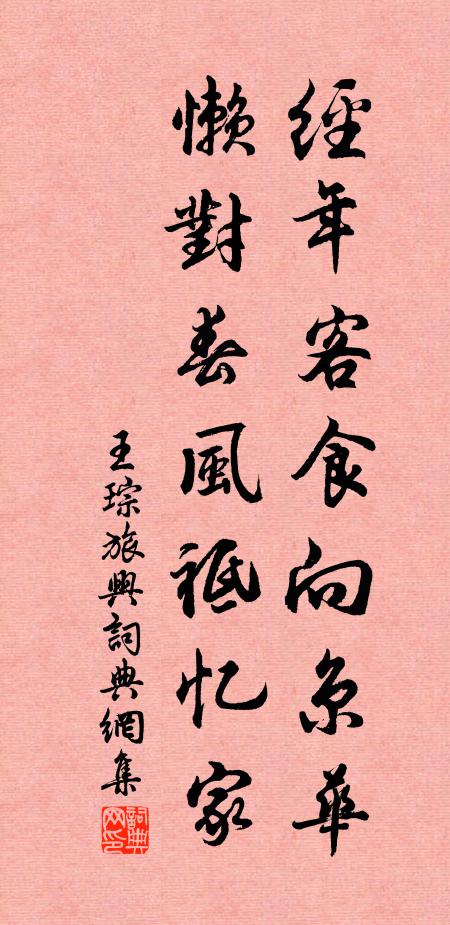 經年客食向京華
懶對春風祗忆家
王琮旅興詞典網集
詞典网印